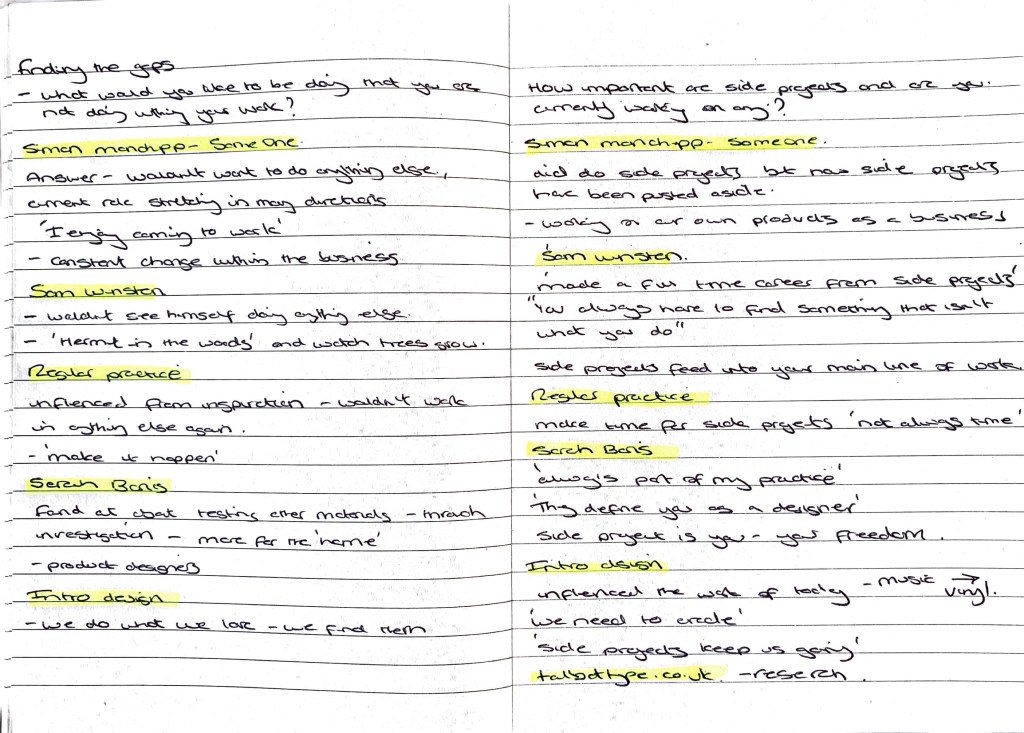 finding the gaps
- what would you like to be doing that you are
not doing within your work?
Simon manchipp - SomeOne.
Answer - wouldn't want to do anything else,
current role stretching in many directions
'I enjoy coming to work'
- constant change within the business.
Sam winston
- wouldn't see himself doing anything else.
- 'Hermit in the woods' and watch trees grow.
Regular practice
influenced from inspiration - wouldn't work
in anything else again.
- 'make it happen'
Serah Boris
Found out about testing other materials - through
investigation - more for the 'home'
- product designers
Intro design
- we do what we love - we find them
How important are side projects and are you
currently working on any?
Simon manchipp - Someone.
did do side projects but now side projects
have been pushed aside.
- working on our own products as a business
Sam winston.
'made a full time career from side projects'
"You always have to find something that isn't
what you do"
side projects feed into your main line of work.
Regular practice
make time for side projects 'not always time'
Sarah Boris
'always part of my practice'
'They define you as a designer'
side project is you - your freedom.
Intro design
influenced the work of today - music → vinyl.
'we need to create'
'side projects keep us going'
talbottype.co.uk. - reserch.